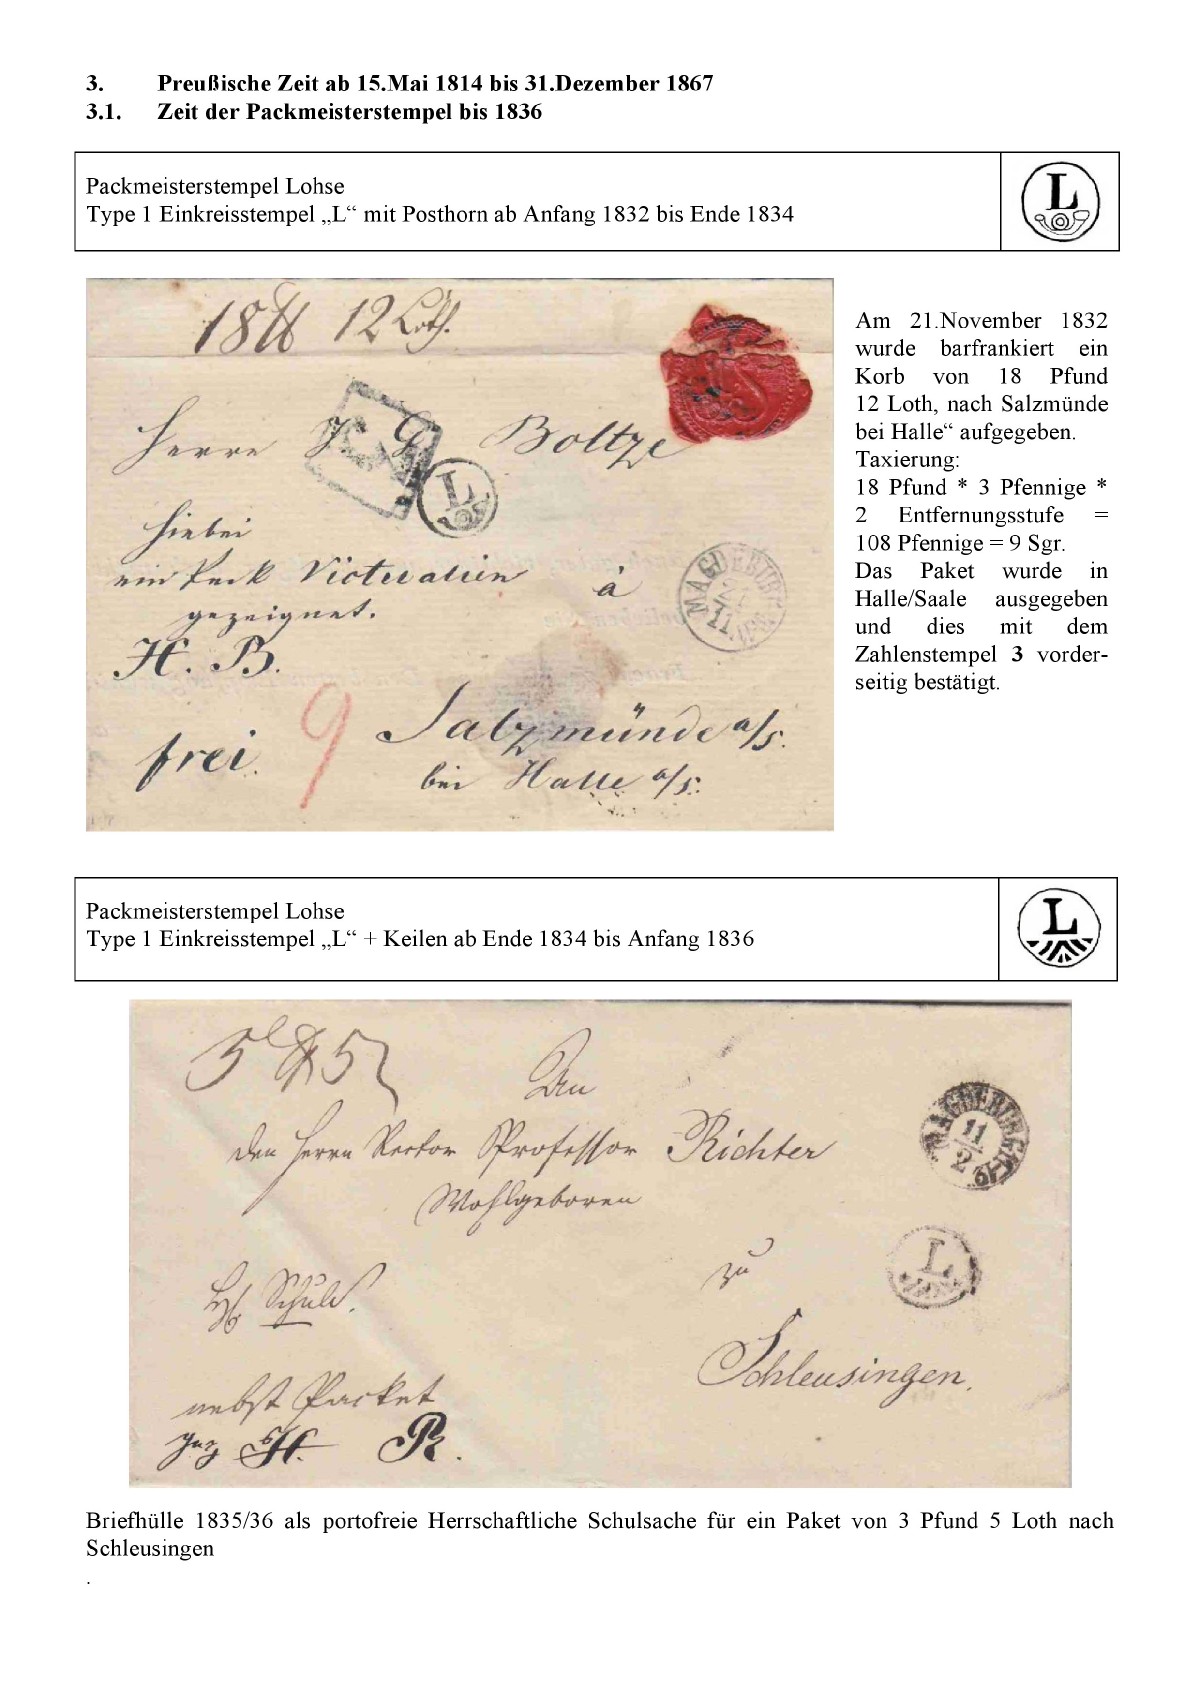 3. Preußische Zeit ab 15.Mai 1814 bis 31.Dezember 1867
3.1. Zeit der Packmeisterstempel bis 1836
Packmeisterstempel Lohse
Type 1 Einkreisstempel „L“ mit Posthorn ab Anfang 1832 bis Ende 1834
L
18 ℔ 12 Loth.
Herrn J. G. Boltze
L
hiebei
ein Pack Victualien à
gezeignet.
H. B.
MAGDEBURG
21
11
frei. 9 Salzmünde a/s.
bei Halle a/s.
Am 21.November 1832
wurde barfrankiert ein
Korb von 18 Pfund
12 Loth, nach Salzmünde
bei Halle“ aufgegeben.
Taxierung:
18 Pfund * 3 Pfennige *
2 Entfernungsstufe =
108 Pfennige = 9 Sgr.
Das Paket wurde in
Halle/Saale ausgegeben
und dies mit dem
Zahlenstempel 3 vorder-
seitig bestätigt.
Packmeisterstempel Lohse
Type 1 Einkreisstempel „L“ + Keilen ab Ende 1834 bis Anfang 1836
L
An
MAGDEBURG
11
2
den Herrn Rector Professor Richter
Wohlgeboren
zu
L
Schuls.
Schleusingen.
nebst Packet
gez H. R.
Briefhülle 1835/36 als portofreie Herrschaftliche Schulsache für ein Paket von 3 Pfund 5 Loth nach
Schleusingen
.